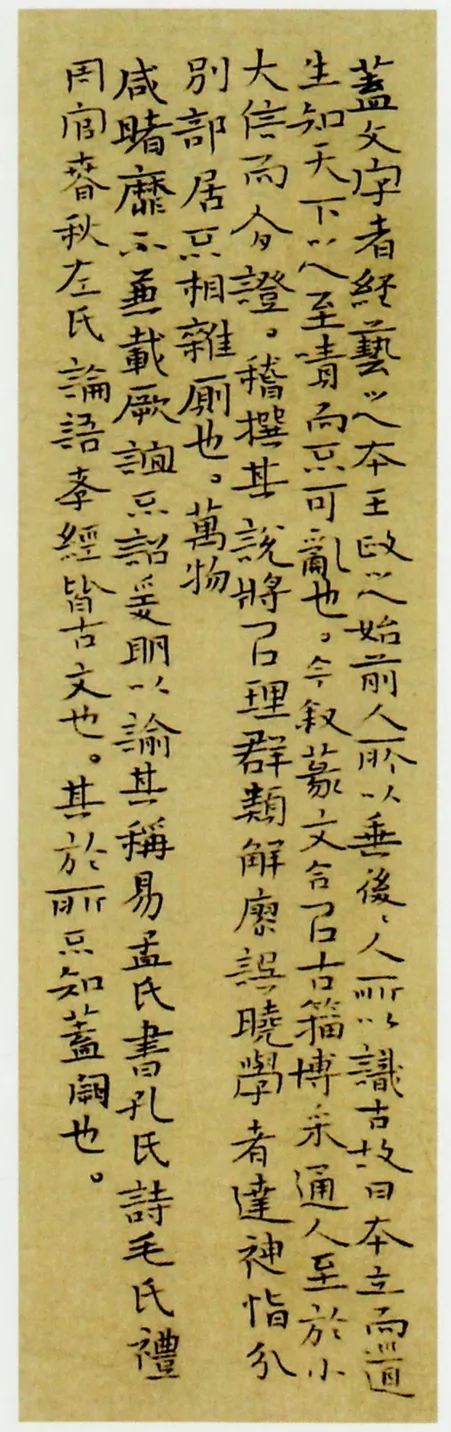 蓋文字者經藝之本王政之始前人所以垂後〻人所以識古故曰本立而道
生知天下之至嘖而不可亂也。今叙篆文合㠯古籀博采通人至於小
大信而有證。稽撰其說將㠯理群類解廖誤曉學者達神恉分
別部居不相雜廁也。萬物
咸睹靡不兼載厥誼不詔爰明以諭其稱易孟氏書孔氏詩毛氏禮
周官春秋左氏論語孝經皆古文也。其於所不知蓋闕也。